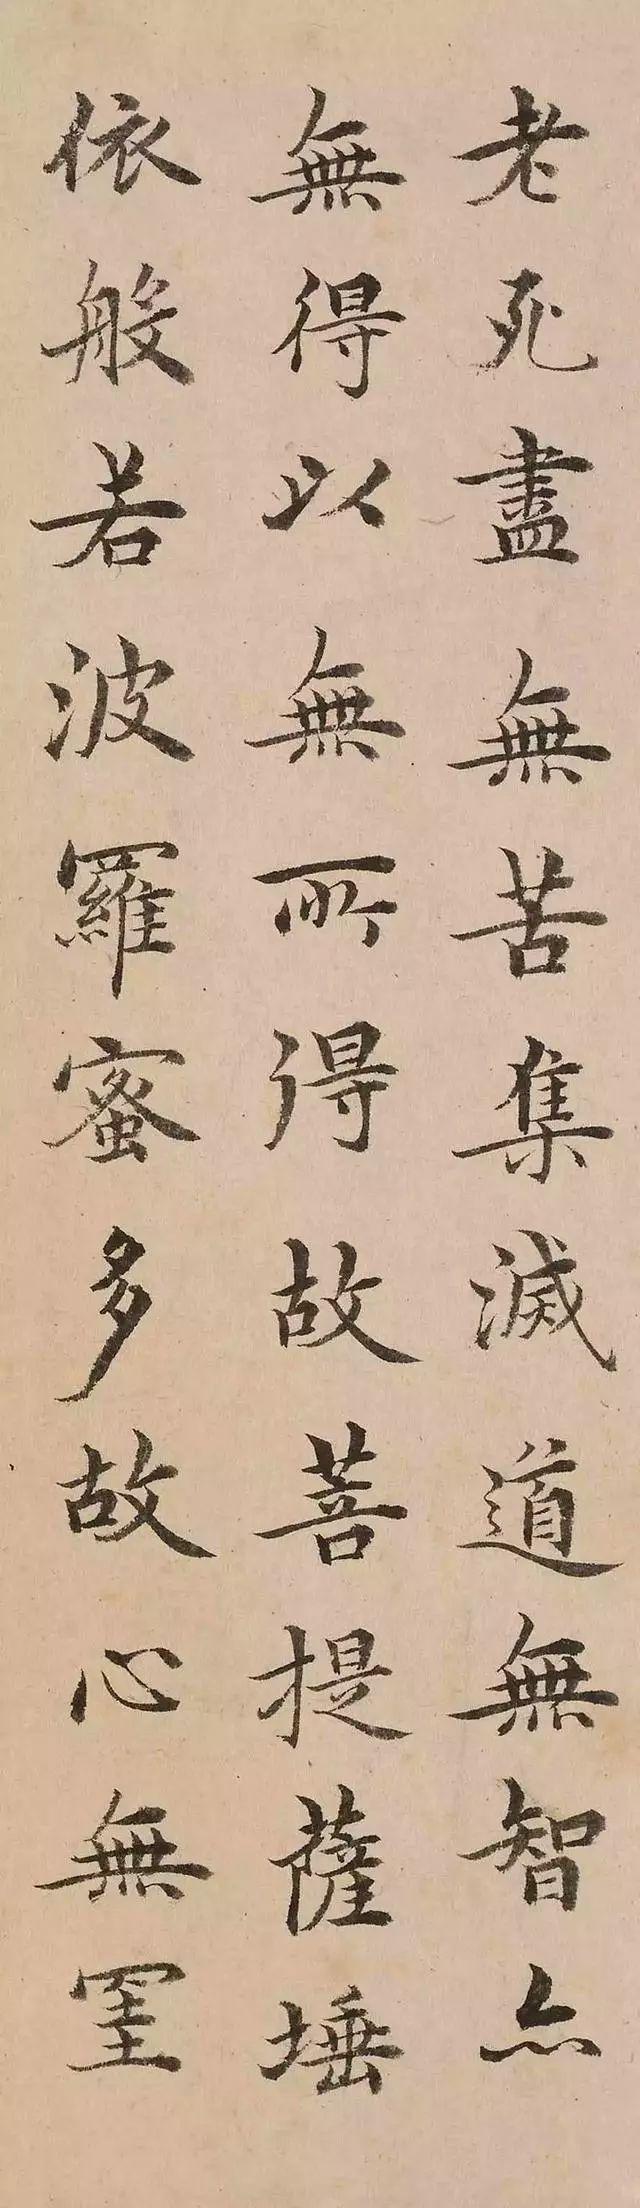 老死盡無苦集滅道無智亦
無得以無所得故菩提薩埵
依般若波羅蜜多故心無罣